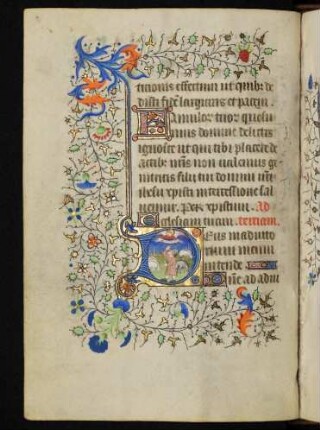 titionis effectum ut quibus de
disti fidē largiaris et pacem.
Famulorum tuorum quesu
mus domine delictis
ignosce ut qui tibi placere de
actibus nr̄is non valemus ge
nitricis filii tui domini nr̄i
ihesu xpisti intercessione sal
uemur. Per xpistum. Ad
Ecclesiam tuam. terciam.
Deus in adiuto
rium meum
intende
Dn̄e ad adiu